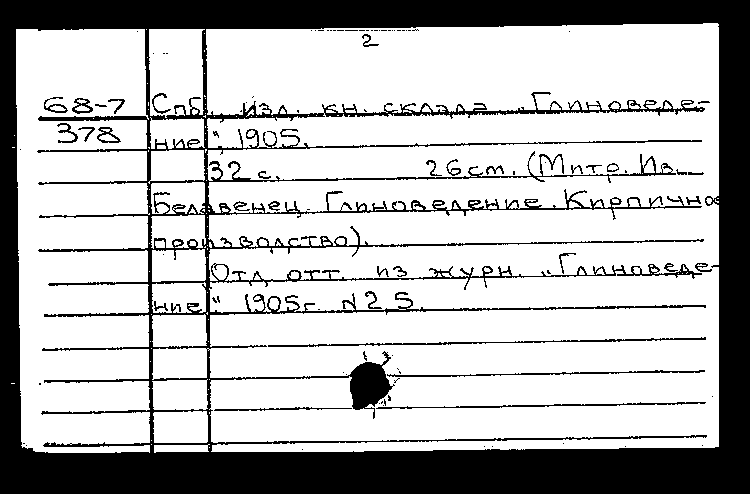 2
68-7 Спб., изд. кн. склада „Глиноведе-
378 ние", 1905.
32 с. 26 см. (Митр. Ив.
Белавенец. Глиноведение. Кирпичное
производство).
Отд. отт. из журн. „Глиноведе-
ние". 1905г. N 2, 5.